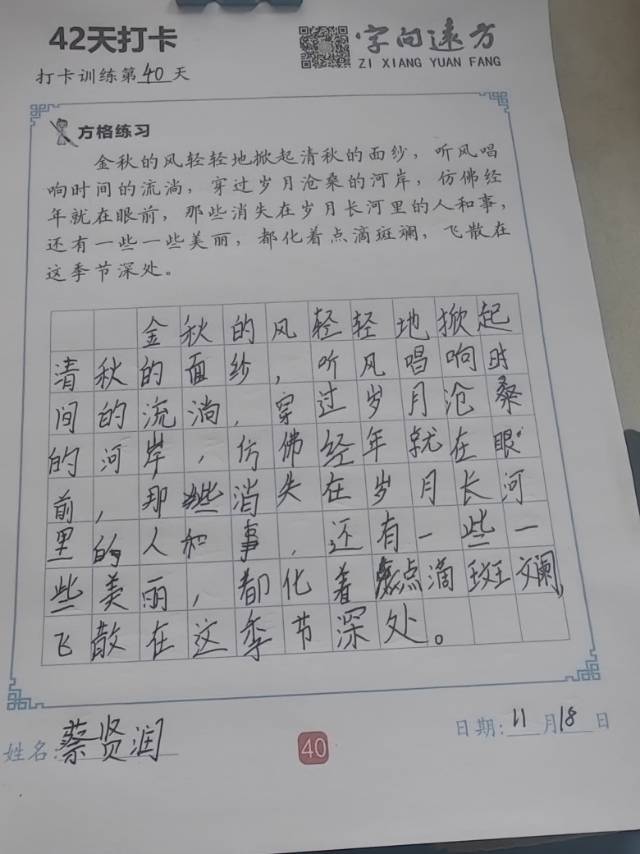 42天打卡
字向远方
ZI XIANG YUAN FANG
打卡训练第40天
方格练习
金秋的风轻轻地掀起清秋的面纱，听风唱
响时间的流淌，穿过岁月沧桑的河岸，仿佛经
年就在眼前，那些消失在岁月长河里的人和事，
还有一些一些美丽，都化着点滴斑斓，飞散在
这季节深处。
金秋的风轻轻地掀起
清秋的面纱，听风唱响时
间的流淌，穿过岁月沧桑
的河岸，仿佛经年就在眼
前，那些消失在岁月长河
里的人和事，还有一些一
些美丽，都化着点滴斑斓，
飞散在这季节深处。
姓名:蔡贤润
40
日期:11月18日